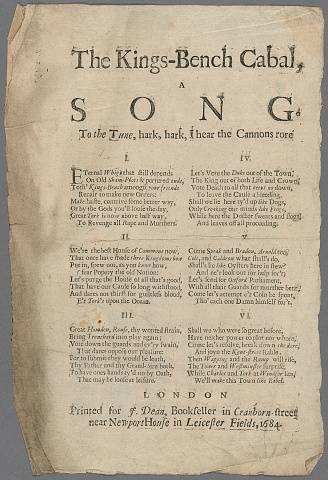 The Kings-Bench Cabal,
A
SONG.
To the Tune, hark, hark, I hear the Cannons rore
I.
ETernal Whigs that still depends
On Old Sham-Plots & perjured ends,
To th' Kings-Bench amongst your friends
Repair to make new Orders:
Make haste, contrive some better way,
Or by the Gods you'll loose the day,
Great York is now above half way,
To Revenge all Rape and Murthers.
II.
We're the best House of Commons now,
That once have made three Kingdoms bow
Put in, Screw out, as you know how,
fear Popery the old Notion:
Let's purge the House of all that's good,
That have our Cause so long withstood,
And dares not thirst for guiltless blood,
E'r York's upon the Ocean.
III.
Great Hamden, Rouse, thy wonted Brain,
Bring Trenchard into play again;
Vote down the guards and ev'ry Swain,
That dares oppose our pleasure:
For to submit they would be loath,
Thy Father and thy Grandsire both,
To have ones hands ty'd up by Oath,
That may be loose at leisure.
IV.
Let's Vote the Duke out of the Town,
The King out of both Life and Crown,
Vote Death to all that do us down,
To leave the Cause a bleeding.
Shall we lie here ty'd up like Dogs,
Only Croaking our minds like Frogs,
While here the Doctor sweats and flogs,
And leaves off all proceeding.
V.
Come Speak and Bradon, Arnold too,
Cole, and what shall's do,
Shall's lie like Oysters here in stew?
And ne'r look out for help for't:
Let's send for Oxford Parliament,
With all their Guards for murther bent,
Come let's attempt e'r Coin be spent,
Tho' each one Damn himself for't.
VI.
Shall we who were so great before,
Have neither power to plot nor whore,
Come let's resolve, break down the door,
And joyn the Kent-street Rabble:
Then Wapping and the Rump will rise,
The Tower and Westminster surprise,
While Charles and York at Windsor lies,
We'll make this Town like Babel.
LONDON
Printed for J. Dean, Bookseller in Cranborn-street
near Newport House in Leicester Fields, 1684.